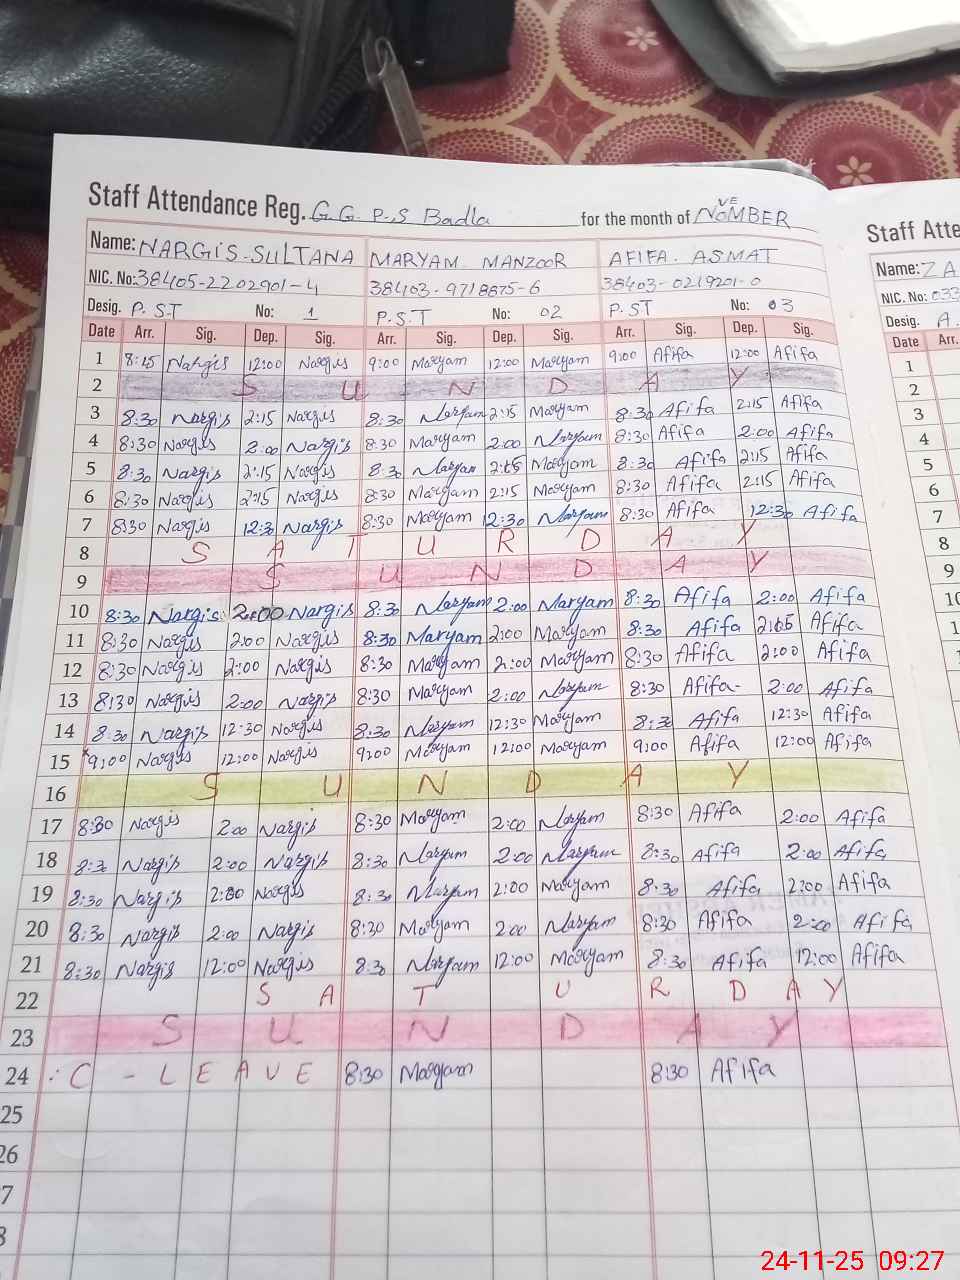 Staff Attendance Reg. G.G.P.S Badla for the month of NOVEMBER
Name: NARGIS SULTANA MARYAM MANZOOR AFIFA ASMAT
NIC. No: 38405-2202901-4 38403-9718875-6 38403-0219201-0
Desig. P.S.T No: 1 P.S.T No: 02 P.S.T No: 03
Date Arr. Sig. Dep. Sig. Arr. Sig. Dep. Sig. Arr. Sig. Dep. Sig.
1 8:15 Nargis 12:00 Nargis 9:00 Maryam 12:00 Maryam 9:00 Afifa 12:00 Afifa
2 S U N D A Y
3 8:30 Nargis 2:15 Nargis 8:30 Maryam 2:15 Maryam 8:30 Afifa 2:15 Afifa
4 8:30 Nargis 2:00 Nargis 8:30 Maryam 2:00 Maryam 8:30 Afifa 2:00 Afifa
5 8:30 Nargis 2:15 Nargis 8:30 Maryam 2:15 Maryam 8:30 Afifa 2:15 Afifa
6 8:30 Nargis 2:15 Nargis 8:30 Maryam 2:15 Maryam 8:30 Afifa 2:15 Afifa
7 8:30 Nargis 12:30 Nargis 8:30 Maryam 12:30 Maryam 8:30 Afifa 12:30 Afifa
8 S A T U R D A Y
9 S U N D A Y
10 8:30 Nargis 2:00 Nargis 8:30 Maryam 2:00 Maryam 8:30 Afifa 2:00 Afifa
11 8:30 Nargis 2:00 Nargis 8:30 Maryam 2:00 Maryam 8:30 Afifa Afifa
12 8:30 Nargis 2:00 Nargis 8:30 Maryam 2:00 Maryam 8:30 Afifa 2:00 Afifa
13 8:30 Nargis 2:00 Nargis 8:30 Maryam 2:00 Maryam 8:30 Afifa 2:00 Afifa
14 8:30 Nargis 12:30 Nargis 8:30 Maryam 12:30 Maryam 8:30 Afifa 12:30 Afifa
15 9:00 Nargis 12:00 Nargis 9:00 Maryam 12:00 Maryam 9:00 Afifa 12:00 Afifa
16 S U N D A Y
17 8:30 Nargis 2:00 Nargis 8:30 Maryam 2:00 Maryam 8:30 Afifa 2:00 Afifa
18 8:30 Nargis 2:00 Nargis 8:30 Maryam 2:00 Maryam 8:30 Afifa 2:00 Afifa
19 8:30 Nargis 2:00 Nargis 8:30 Maryam 2:00 Maryam 8:30 Afifa 2:00 Afifa
20 8:30 Nargis 2:00 Nargis 8:30 Maryam 2:00 Maryam 8:30 Afifa 2:00 Afifa
21 8:30 Nargis 12:00 Nargis 8:30 Maryam 12:00 Maryam 8:30 Afifa 12:00 Afifa
22 S A T U R D A Y
23 S U N D A Y
24 C - L E A V E 8:30 Maryam 8:30 Afifa
25
26
Staff Atte
Name: ZA
NIC. No: 033
Desig. A.
Date Arr.
1
2
3
4
5
6
7
8
9
10
24-11-25 09:27